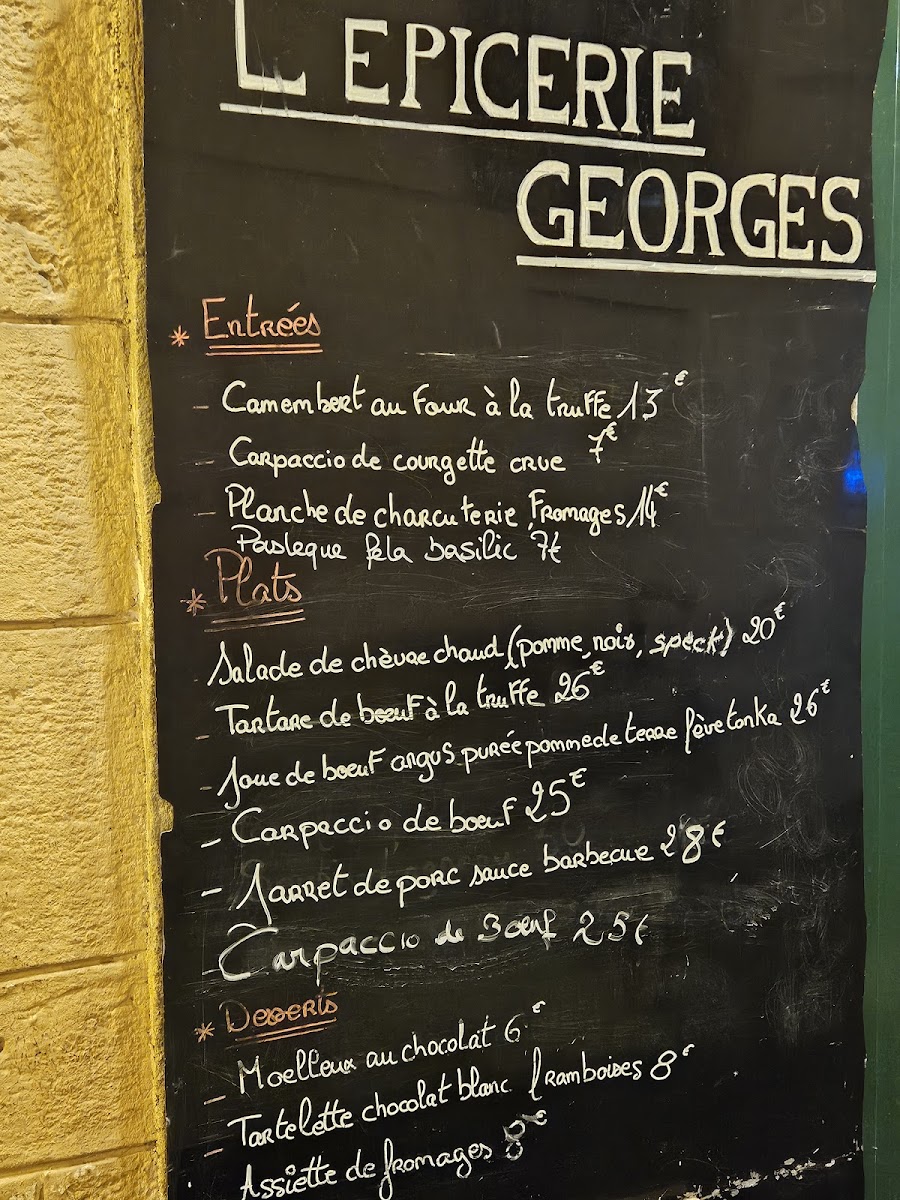 L'EPICERIE
GEORGES
* Entrées
- Camembert au four à la truffe 13€
- Carpaccio de courgette crue 7€
- Planche de charcuterie, Fromages 14€
Pasteque feta basilic 7€
* Plats
Salade de chèvre chaud (pomme, noix, speck) 20€
- Tartare de bœuf à la truffe 26€
- Joue de bœuf angus purée pomme de terre fève tonka 26€
- Carpaccio de bœuf 25€
- Jarret de porc sauce barbecue 28€
- Carpaccio de Bœuf 25€
* Desserts
- Moelleux au chocolat 6€
- Tartelette chocolat blanc framboises 8€
Assiette de fromages 8€